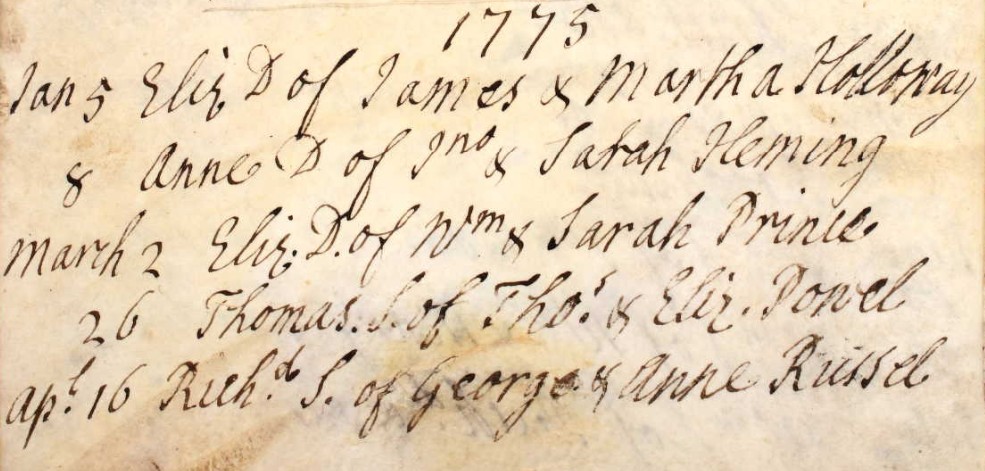 1775
Jan 5 Eliz D of James & Martha Holloway
8 Anne D of Jno & Sarah Fleming
March 2 Eliz. D. of Wm & Sarah Prince
26 Thomas. S. of Thos. & Eliz. Dowel
Apl. 16 Richd. S. of George & Anne Russel